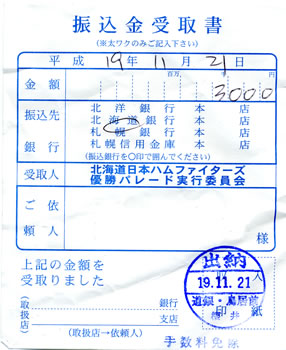 振込金受取書
(※太ワクのみご記入下さい)
平成 19年 11月 21日
金額 百万 千 円 3000
振込先銀行
北洋銀行 本店
北海道銀行 本店
札幌銀行 本店
札幌信用金庫 本店
(振込銀行を○印で囲んでください)
受取人 北海道日本ハムファイターズ
優勝パレード実行委員会
ご依頼人 様
上記の金額を
受取りました
(取扱店) 銀行
支店
(取扱店→依頼人)
出納
19.11.21
道銀・鳥居前
印紙
手数料免除